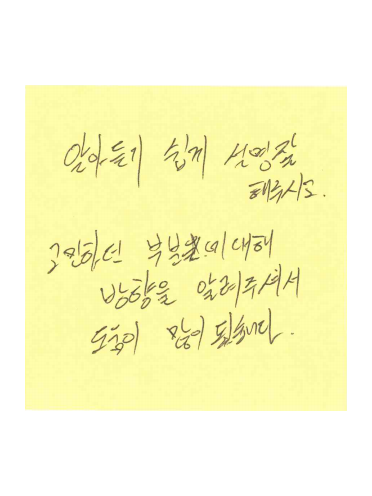 알아듣기 쉽게 설명잘
해주시고.
고민하던 부분에대해
방향을 알려주셔서
도움이 많이 됐습니다.